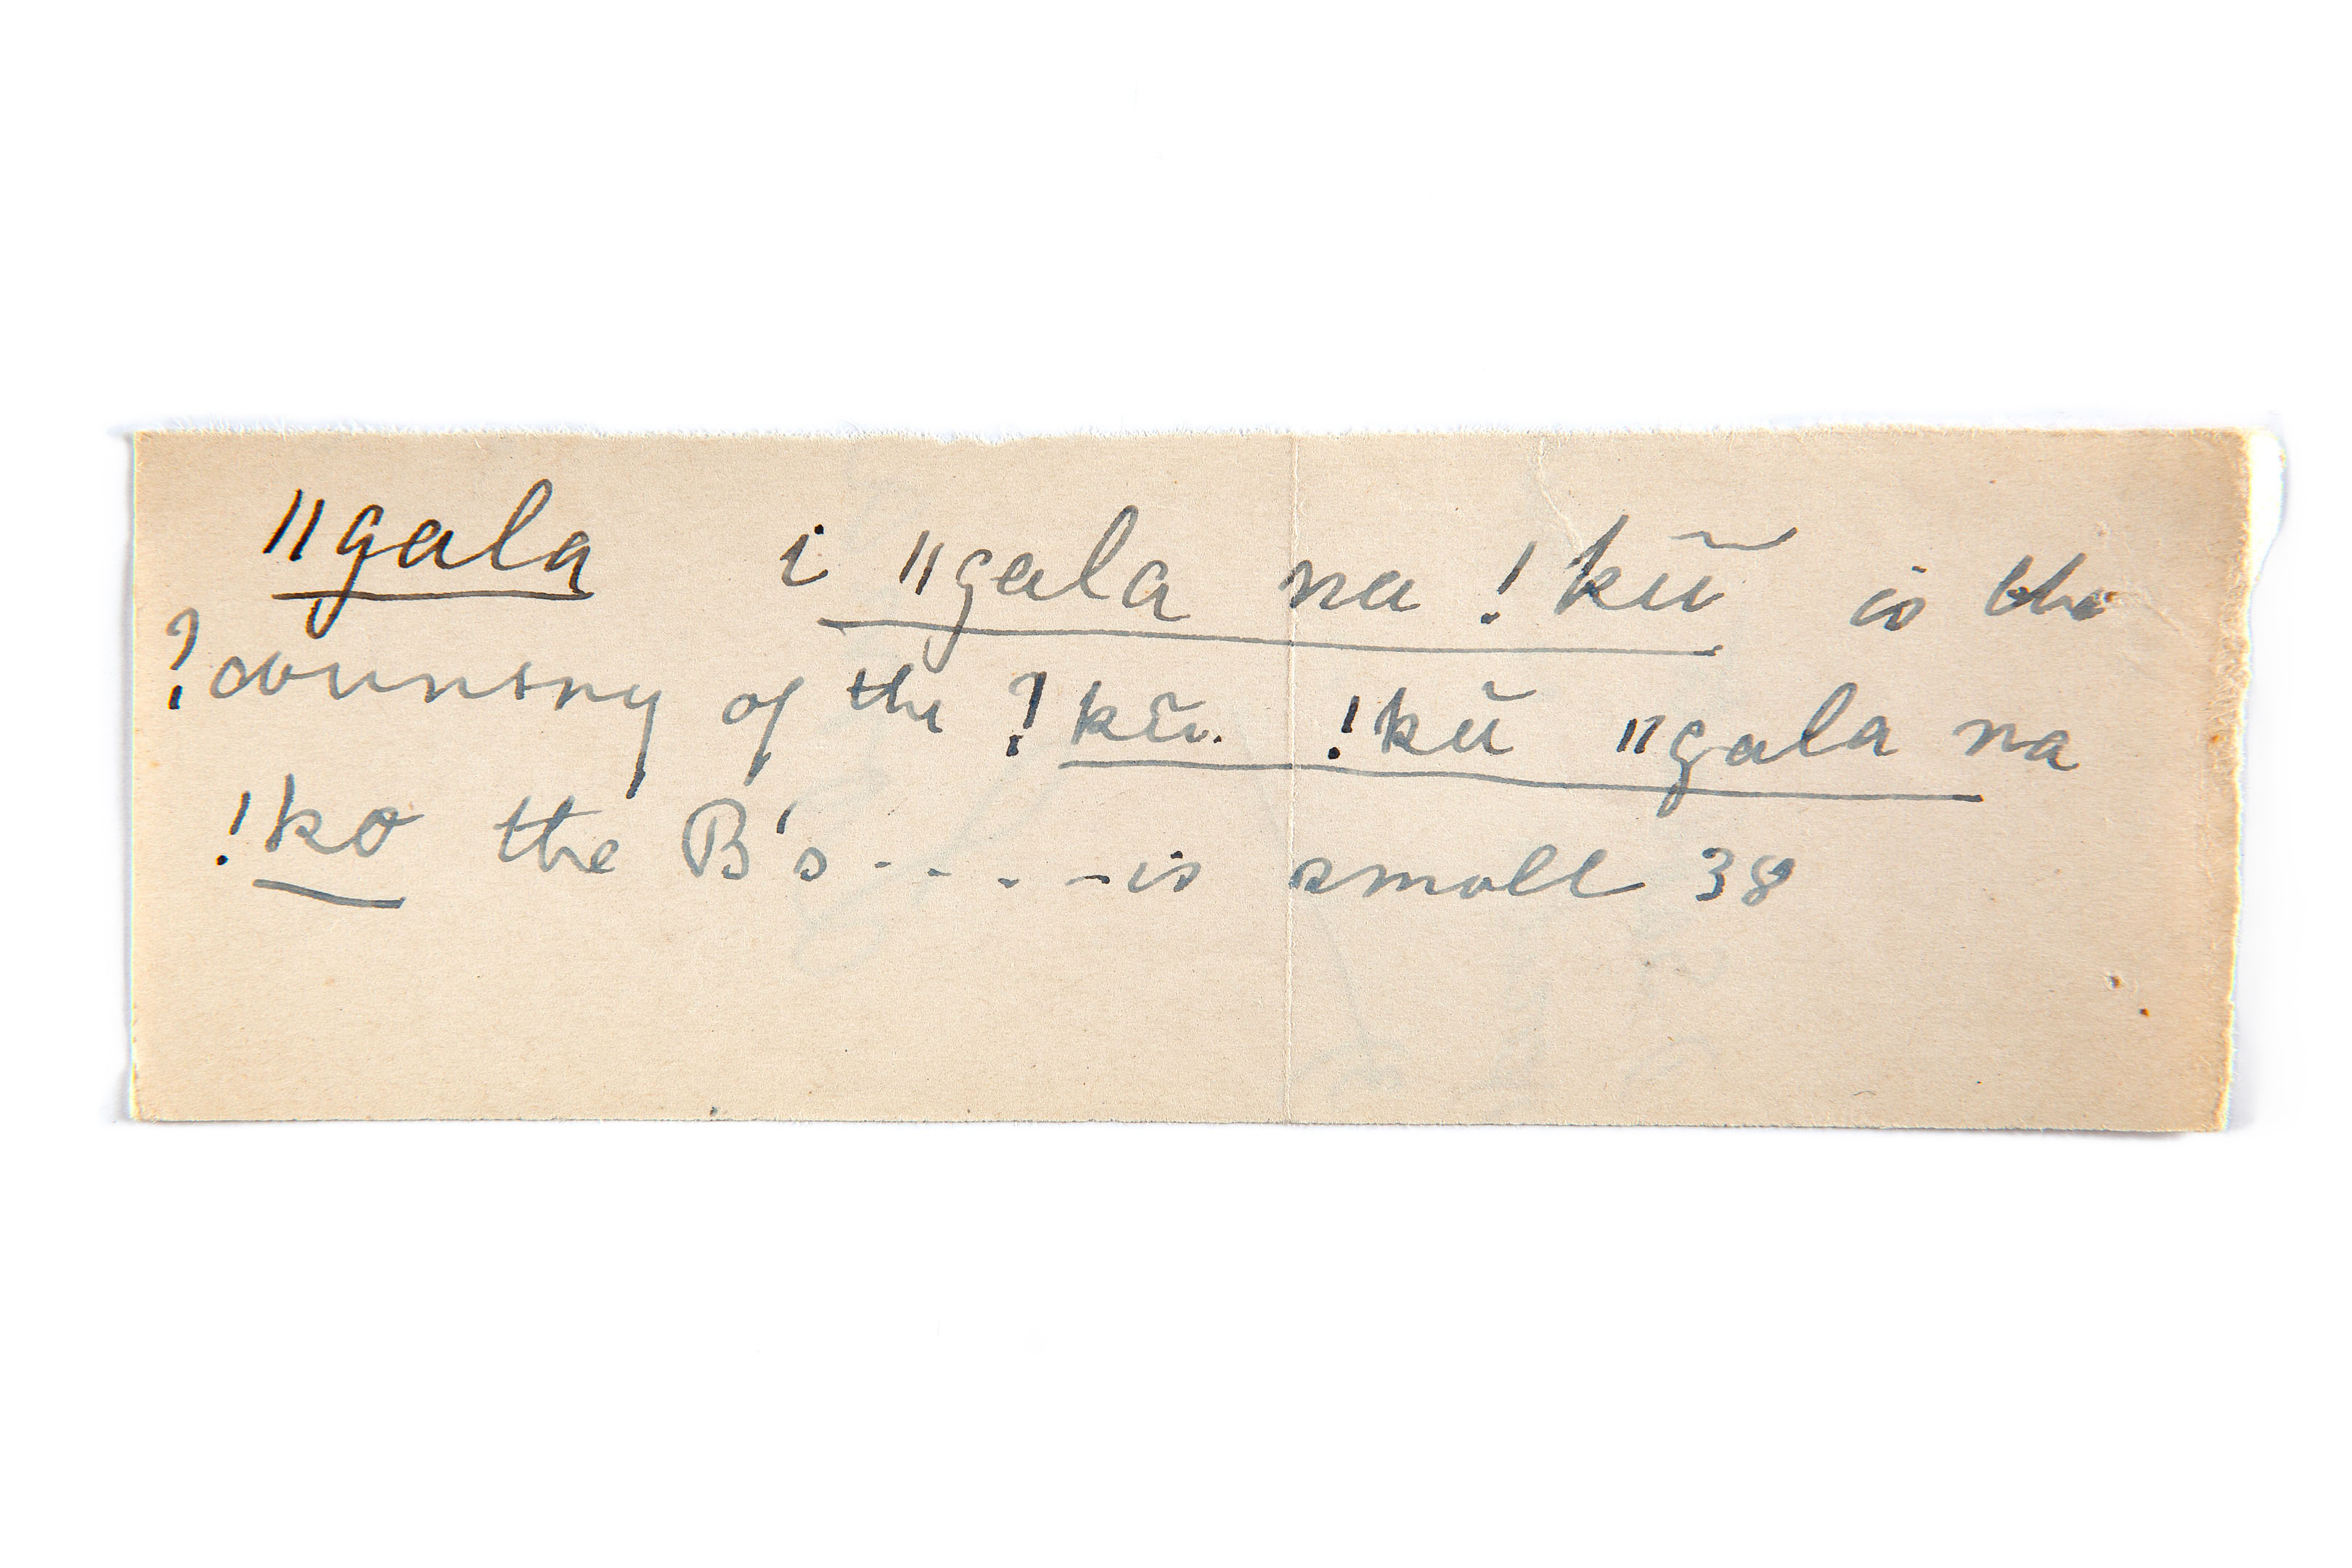 ǁgala i ǁgala na !kũ is the
? country of the ? kũ. !kũ ǁgala na
!ko the B's - . . . - is small 38